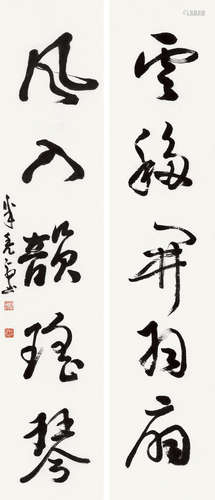 雲移開羽扇
風入韻瑤琴